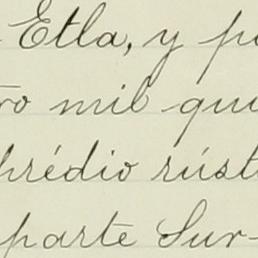 Etla, y po
ro mil qui
prédio rúst
parte Sur-